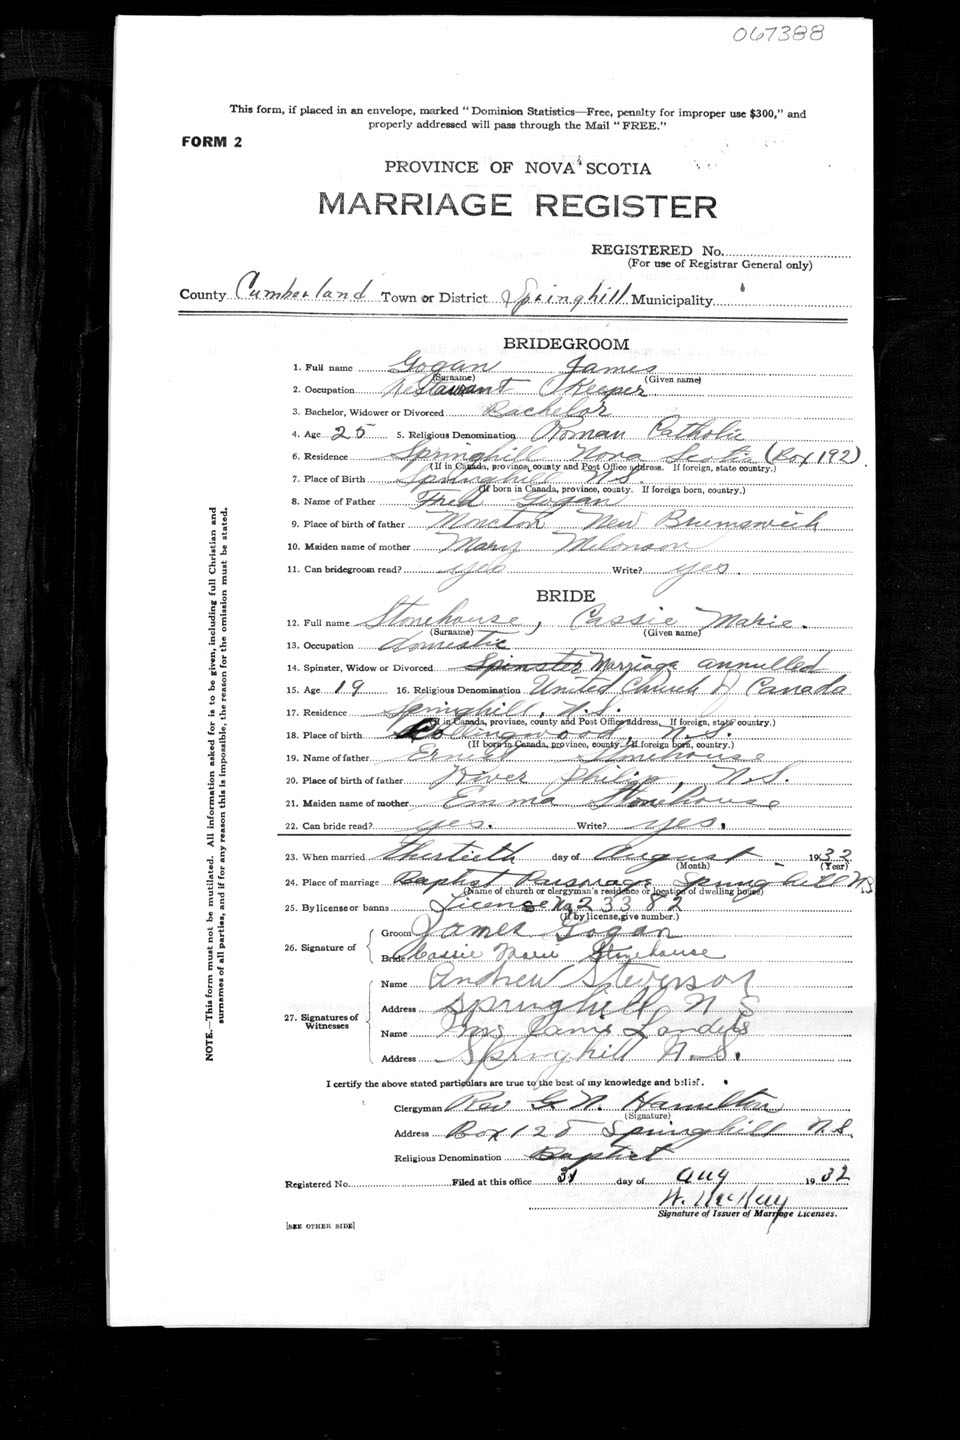 067388
This form, if placed in an envelope, marked "Dominion Statistics—Free, penalty for improper use $300," and
properly addressed will pass through the Mail "FREE."
FORM 2
PROVINCE OF NOVA SCOTIA
MARRIAGE REGISTER
REGISTERED No.
(For use of Registrar General only)
County Cumberland Town or District Springhill Municipality
BRIDEGROOM
1. Full name Gogan James
(Surname) (Given name)
2. Occupation Restaurant Keeper
3. Bachelor, Widower or Divorced Bachelor
4. Age 25 5. Religious Denomination Roman Catholic
6. Residence Springhill Nova Scotia (Box 192)
(If in Canada, province, county and Post Office address. If foreign, state country.)
7. Place of Birth Springhill N.S.
(If born in Canada, province, county. If foreign born, country.)
8. Name of Father Fred Gogan
9. Place of birth of father Moncton New Brunswick
10. Maiden name of mother Mary
11. Can bridegroom read? yes Write? yes.
BRIDE
12. Full name Stonehouse, Cassie Marie.
(Surname) (Given name)
13. Occupation domestic
14. Spinster, Widow or Divorced Spinster Marriage annulled
15. Age 19 16. Religious Denomination United Church of Canada
17. Residence Springhill, N.S.
(If in Canada, province, county and Post Office address, If foreign, state country.)
18. Place of birth Collingwood, N.S.
(If born in Canada, province, county. If foreign born, country.)
19. Name of father Ernest Stonehouse
20. Place of birth of father River Philip, N.S.
21. Maiden name of mother Emma Stonehouse
22. Can bride read? yes. Write? yes.
23. When married Thirtieth day of August 1932
(Month) (Year)
24. Place of marriage Baptist Parsonage Springhill N.S
(Name of church or clergyman's residence or location of dwelling house)
25. By license or banns License No 23382
(If by license, give number.)
26. Signature of
Groom James Gogan
Bride Cassie Marie Stonehouse
27. Signatures of Witnesses
Name Andrew Stevenson
Address Springhill N S
Name Mrs Landers
Address Springhill N.S.
I certify the above stated particulars are true to the best of my knowledge and belief.
Clergyman Rev G. N. Hamilton
(Signature)
Address Box 125 Springhill N.S.
Religious Denomination Baptist
Registered No. Filed at this office 31 day of Aug 1932
Signature of Issuer of Marriage Licenses.
[SEE OTHER SIDE]
NOTE.—This form must not be mutilated. All information asked for is to be given, including full Christian and
surnames of all parties, and if for any reason this is impossible, the reason for the omission must be stated.